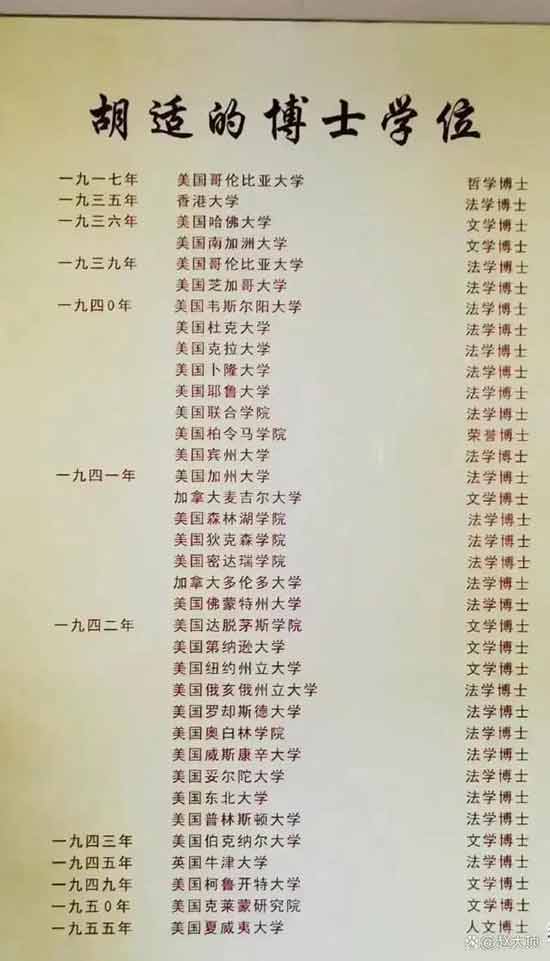 胡适的博士学位
一九一七年 美国哥伦比亚大学 哲学博士
一九三五年 香港大学 法学博士
一九三六年 美国哈佛大学 文学博士
美国南加洲大学 文学博士
一九三九年 美国哥伦比亚大学 法学博士
美国芝加哥大学 法学博士
一九四0年 美国韦斯尔阳大学 法学博士
美国杜克大学 法学博士
美国克拉大学 法学博士
美国卜隆大学 法学博士
美国耶鲁大学 法学博士
美国联合学院 法学博士
美国柏令马学院 荣誉博士
美国宾州大学 法学博士
一九四一年 美国加州大学 法学博士
加拿大麦吉尔大学 文学博士
美国森林湖学院 法学博士
美国狄克森学院 法学博士
美国密达瑞学院 法学博士
加拿大多伦多大学 法学博士
美国佛蒙特州大学 法学博士
一九四二年 美国达脱茅斯学院 文学博士
美国第纳逊大学 文学博士
美国纽约州立大学 文学博士
美国俄亥俄州立大学 法学博士
美国罗却斯德大学 法学博士
美国奥白林学院 法学博士
美国威斯康辛大学 法学博士
美国妥尔陀大学 法学博士
美国东北大学 法学博士
美国普林斯顿大学 法学博士
一九四三年 美国伯克纳尔大学 文学博士
一九四五年 英国牛津大学 法学博士
一九四九年 美国柯鲁开特大学 文学博士
一九五0年 美国克莱蒙研究院 文学博士
一九五五年 美国夏威夷大学 人文博士
@赵大师